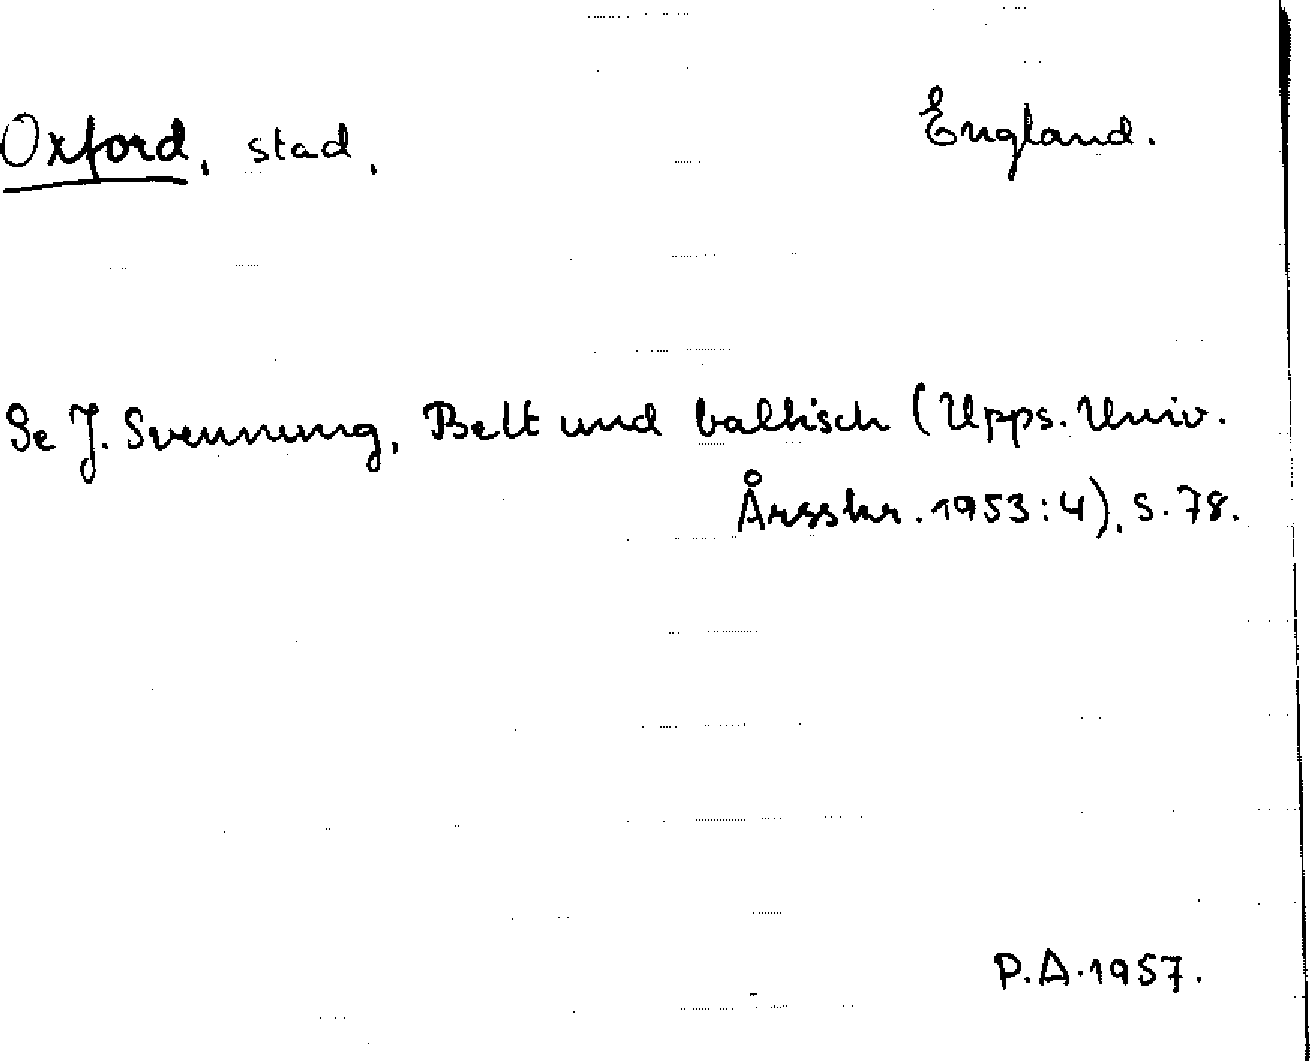 Oxford, stad, England.
Se J. Svennung, Belt und baltisch (Upps. Univ.
Årsskr. 1953:4), s. 78.
P.A. 1957.